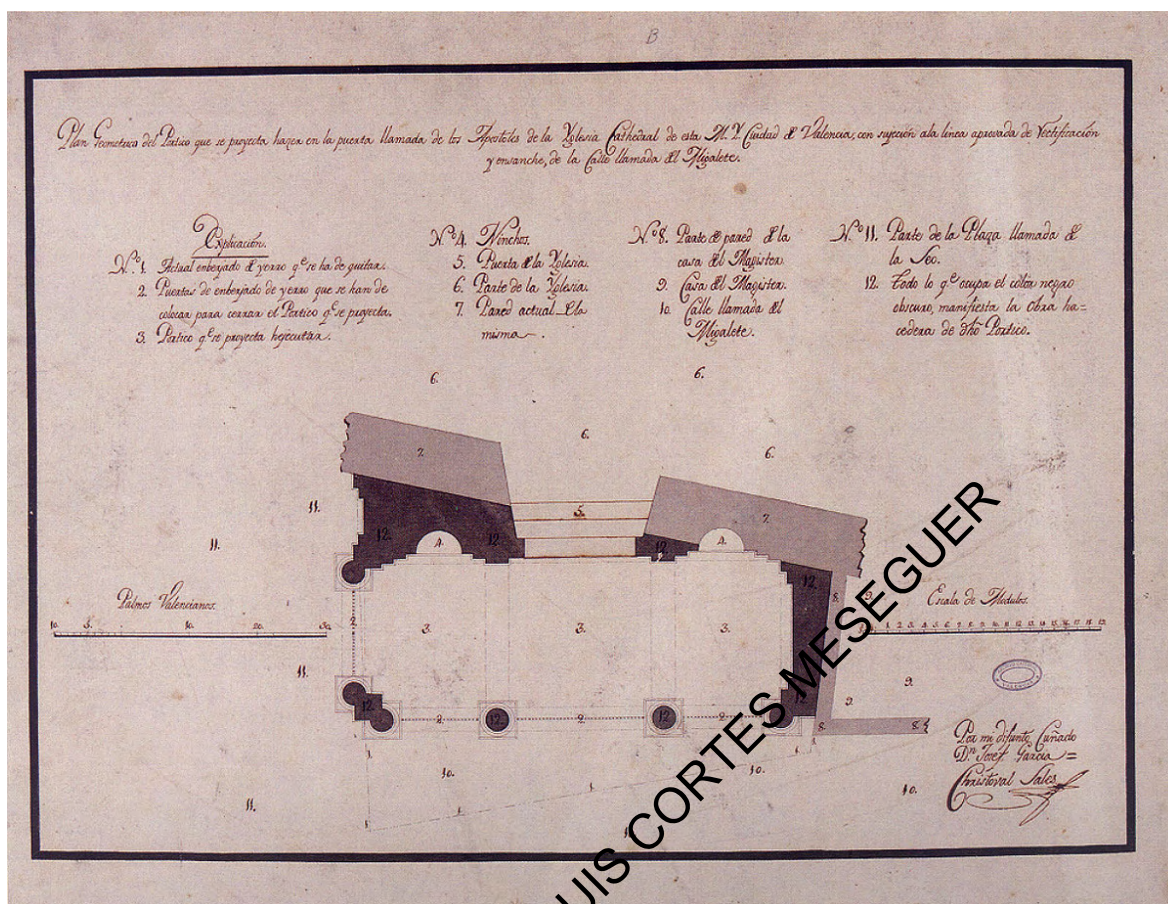 B
Plan Geometrico del Portico que se proyecta hazer en la puerta llamada de los Apostoles de la Yglesia Cathedral de esta M. Y. Ciudad de Valencia, con sujecion ala linea aprovada de Rectificación
y ensanche, de la Calle llamada del Migalete.
Explicación.
N.º 1. Actual enberjado de yerro q.e se ha de quitar.
2. Puertas de enberjado de yerro que se han de
colocar para cerrar el Portico q.e se proyecta.
3. Portico q.e se proyecta hejecutar.
N.º 4. Ninchos.
5. Puerta de la Yglesia.
6. Parte de la Yglesia.
7. Pared actual de la
misma.
N.º 8. Parte de pared de la
casa del Magister.
9. Casa del Magister.
10. Calle llamada del
Migalete.
N.º 11. Parte de la Plaza llamada de
la Seo.
12. Todo lo q.e ocupa el color negro
obscuro, manifiesta la obra ha=
cedera de dho Portico.
6. 6.
6.
6.
7.
11. 5. 7.
11. 12. 4. 12. 12. 4.
12. 8. 9.
Palmos Valencianos.
Escala de Modulos.
10. 5. 10. 20. 30.
1 2 3 4 5 6 7 8 9 10 11 12
2. 3. 3. 3.
11. 9.
12. 12. 9.
2. 12. 2. 12. 2. 8. 8.
1. 1.
10. 10.
11. 1. 1. 10.
1.
Por mi difunto Cuñado
D.n Josef Garcia=
Christoval Sales
LUIS CORTES MESEGUER